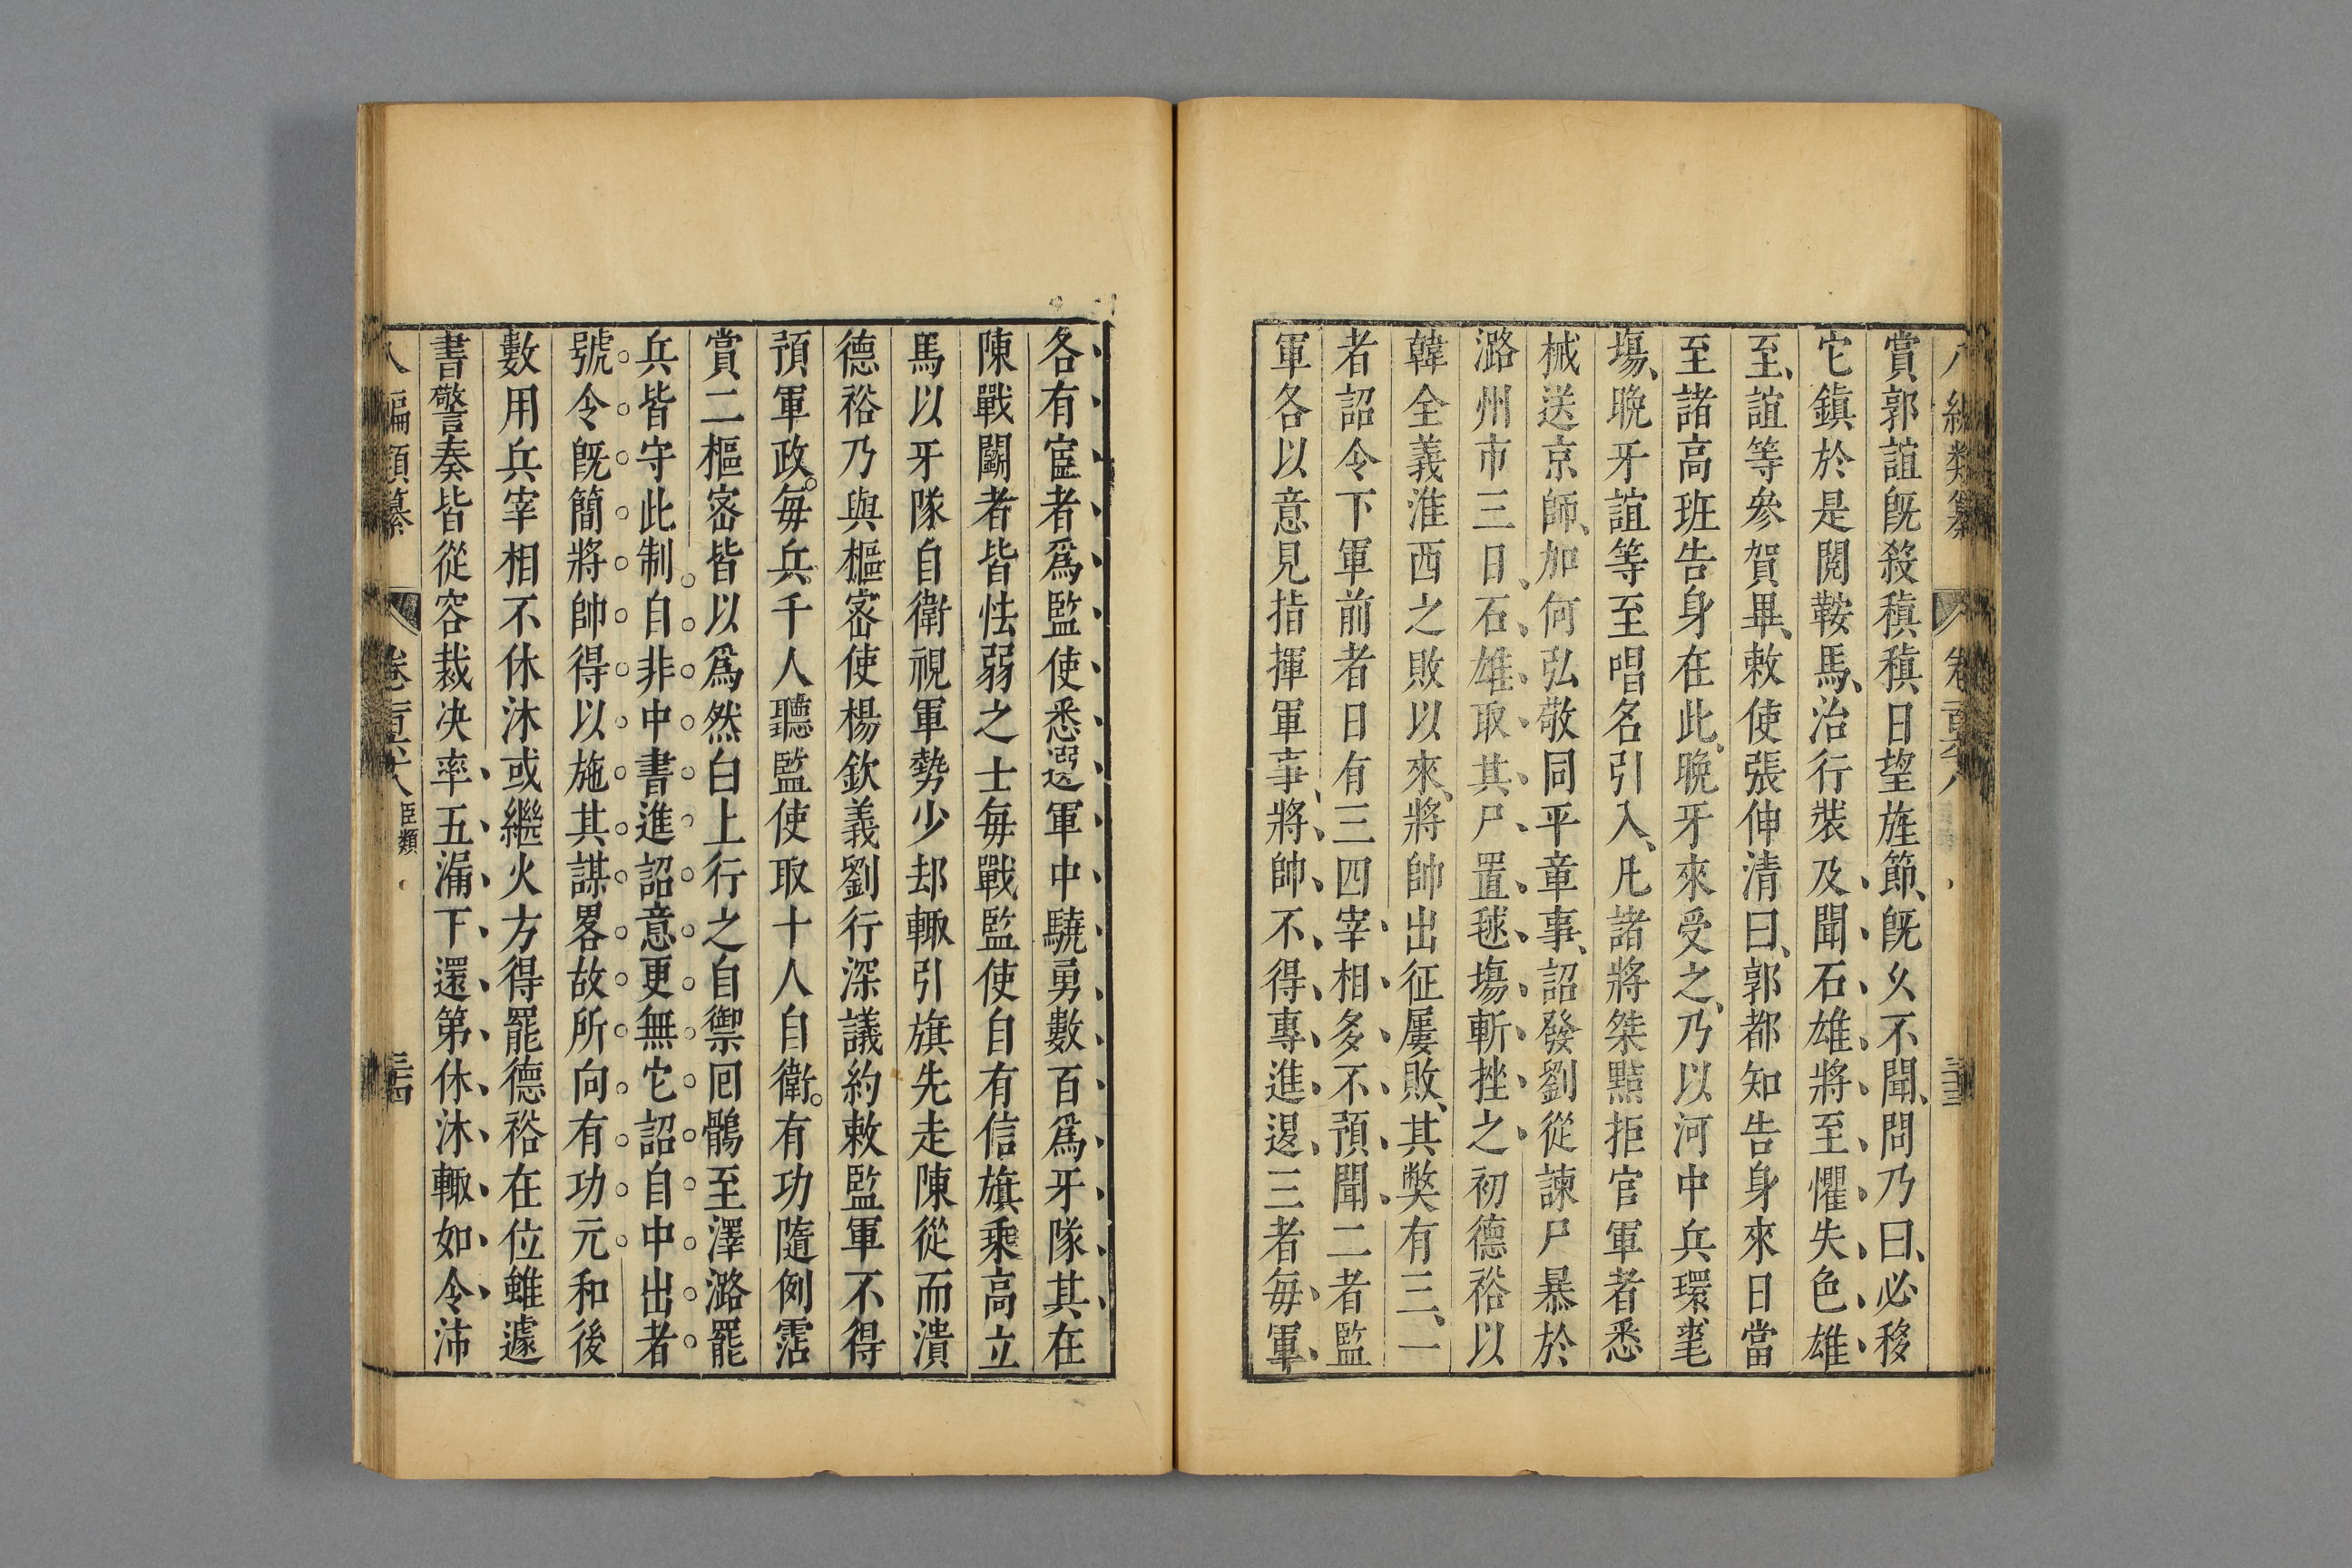 賞郭誼既殺稹稹日望旌節既久不聞問乃曰必移
它鎮於是閱鞍馬治行裝及聞石雄將至懼失色雄
至誼等參賀畢敕使張仲清曰郭都知告身來日當
至諸高班告身在此晩牙來受之乃以河中兵環毬
塲晩牙誼等至唱名引入凡諸將桀黠拒官軍者悉
械送京師加何弘敬同平章事詔發劉從諫尸暴於
潞州市三日石雄取其尸置毬塲斬挫之初德裕以
韓全義淮西之敗以來將帥出征屢敗其弊有三一
者詔令下軍前者日有三四宰相多不預聞二者監
軍各以意見指揮軍事將帥不得專進退三者每軍
各有宦者爲監使悉選軍中驍勇數百爲牙隊其在
陳戰鬭者皆怯弱之士每戰監使自有信旗乘高立
馬以牙隊自衛視軍勢少却輙引旗先走陳從而潰
德裕乃與樞密使楊欽義劉行深議約敕監軍不得
預軍政每兵千人聽監使取十人自衛有功隨例霑
賞二樞密皆以爲然白上行之自禦回鶻至澤潞罷
兵皆守此制自非中書進詔意更無它詔自中出者
號令既簡將帥得以施其謀畧故所向有功元和後
數用兵宰相不休沐或繼火方得罷德裕在位雖遽
書警奏皆從容裁决率五漏下還第休沐輙如令沛
八編類纂 卷一百六十八 臣類 三十四